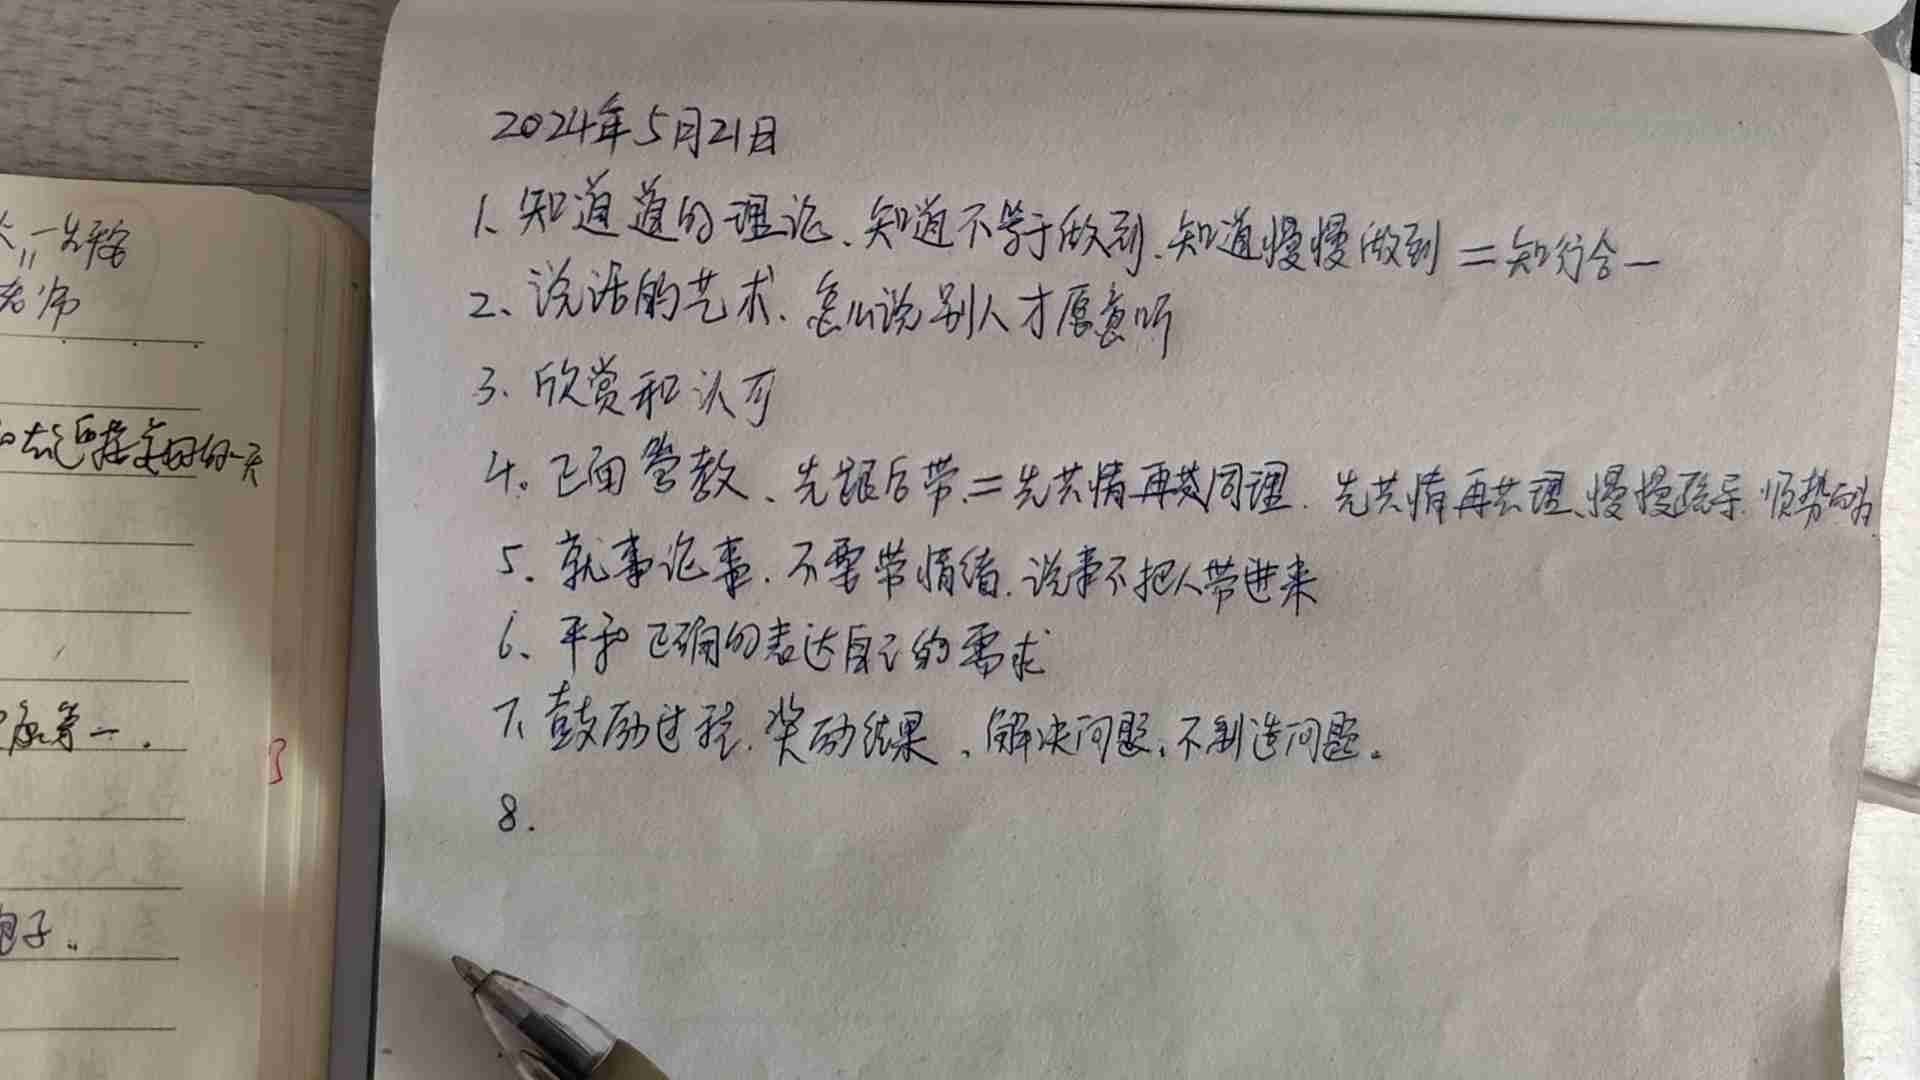 2024年5月21日
1、知道道的理论、知道不等于做到、知道慢慢做到=知行合一
2、说话的艺术、怎么说别人才愿意听
3、欣赏和认可
4。正面管教、先跟后带=先共情再共同理.先共情再共理、慢慢疏导.顺势而为
5、就事论事.不要带情绪.说事不把人带进来
6、平和正确的表达自己的需求
7、鼓励过程.奖励结果、解决问题、不制造问题。
8.
老师
第一.
子..